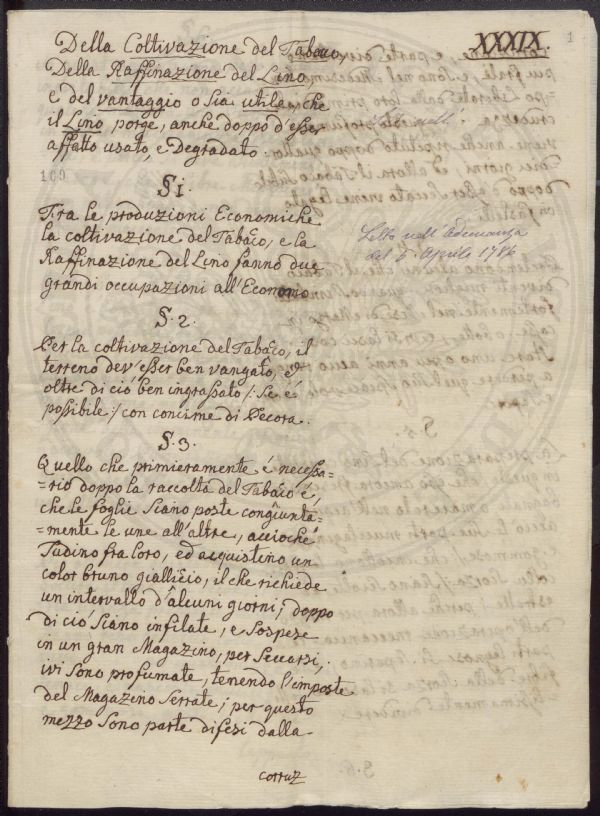 XXXIX.
1
Della Coltivazione del Tabaco,
Della Raffinazione del Lino,
e del vantaggio o sia utile, che
il Lino porge, anche doppo d'esser
affatto usato, e Degradato.
169
§ 1.
Tra le produzioni Economiche
la coltivazione del Tabaco, e la
Raffinazione del Lino fanno due
grandi occupazioni all'Economo
Letta nell'Adunanza
del 5. Aprile 1786
§. 2.
Per la coltivazione del Tabaco, il
terreno dev'esser ben vangato, et
oltre di ció ben ingrassato /: Se é
possibile :/ con concime di Pecora.
§. 3.
Quello che primieramente é necessa=
=rio doppo la raccolta del Tabaco é,
che le foglie siano poste congiunta=
=mente le une all'altre, acciochè
Sudino fra loro, ed acquistino un
color bruno gialliccio, il che richiede
un intervallo d'alcuni giorni; doppo
di cio siano infilate, e sospese
in un gran Magazino, per seccarsi,
ivi sono profumate, tenendo l'imposte
del Magazeno serrate; per questo
mezzo sono parte difesi dalla
corruz